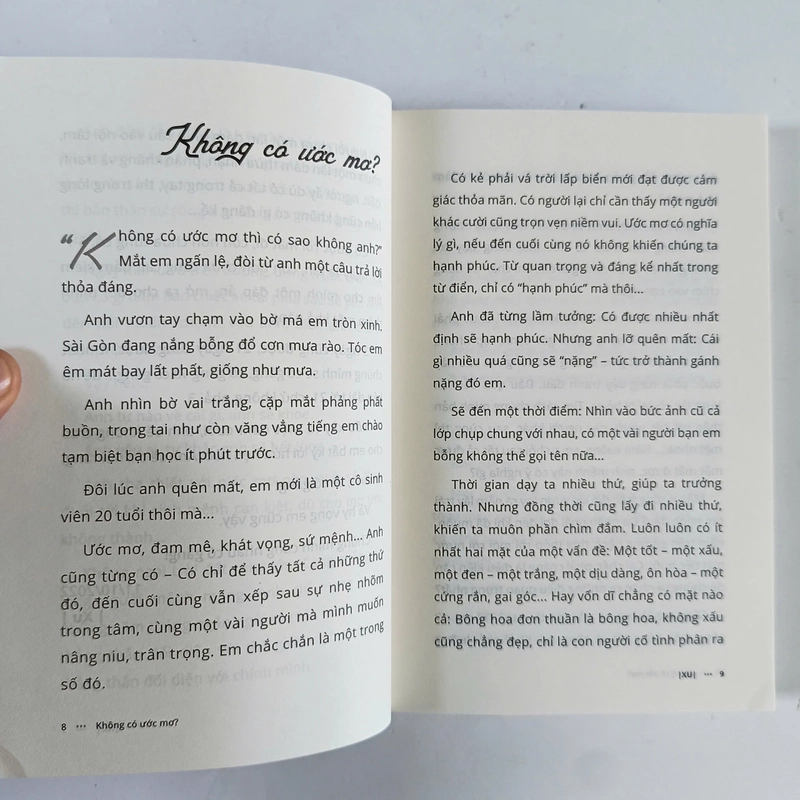 Không có ước mơ?
“Không có ước mơ thì có sao không anh?”
Mắt em ngấn lệ, đòi từ anh một câu trả lời
thỏa đáng.
Anh vươn tay chạm vào bờ má em tròn xinh.
Sài Gòn đang nắng bỗng đổ cơn mưa rào. Tóc em
êm mát bay lất phất, giống như mưa.
Anh nhìn bờ vai trắng, cặp mắt phảng phất
buồn, trong tai như còn văng vẳng tiếng em chào
tạm biệt bạn học ít phút trước.
Đôi lúc anh quên mất, em mới là một cô sinh
viên 20 tuổi thôi mà...
Ước mơ, đam mê, khát vọng, sứ mệnh... Anh
cũng từng có – Có chỉ để thấy tất cả những thứ
đó, đến cuối cùng vẫn xếp sau sự nhẹ nhõm
trong tâm, cùng một vài người mà mình muốn
nâng niu, trân trọng. Em chắc chắn là một trong
số đó.
8 ••• Không có ước mơ?
Có kẻ phải vá trời lấp biển mới đạt được cảm
giác thỏa mãn. Có người lại chỉ cần thấy một người
khác cười cũng trọn vẹn niềm vui. Ước mơ có nghĩa
lý gì, nếu đến cuối cùng nó không khiến chúng ta
hạnh phúc. Từ quan trọng và đáng kể nhất trong
từ điển, chỉ có “hạnh phúc” mà thôi...
Anh đã từng lầm tưởng: Có được nhiều nhất
định sẽ hạnh phúc. Nhưng anh lỡ quên mất: Cái
gì nhiều quá cũng sẽ “nặng” – tức trở thành gánh
nặng đó em.
Sẽ đến một thời điểm: Nhìn vào bức ảnh cũ cả
lớp chụp chung với nhau, có một vài người bạn em
bỗng không thể gọi tên nữa...
Thời gian dạy ta nhiều thứ, giúp ta trưởng
thành. Nhưng đồng thời cũng lấy đi nhiều thứ,
khiến ta muôn phần chìm đắm. Luôn luôn có ít
nhất hai mặt của một vấn đề: Một tốt – một xấu,
một đen – một trắng, một dịu dàng, ôn hòa – một
cứng rắn, gai góc... Hay vốn dĩ chẳng có mặt nào
cả: Bông hoa đơn thuần là bông hoa, không xấu
cũng chẳng đẹp, chỉ là con người cố tình phân ra
|XU| ••• 9